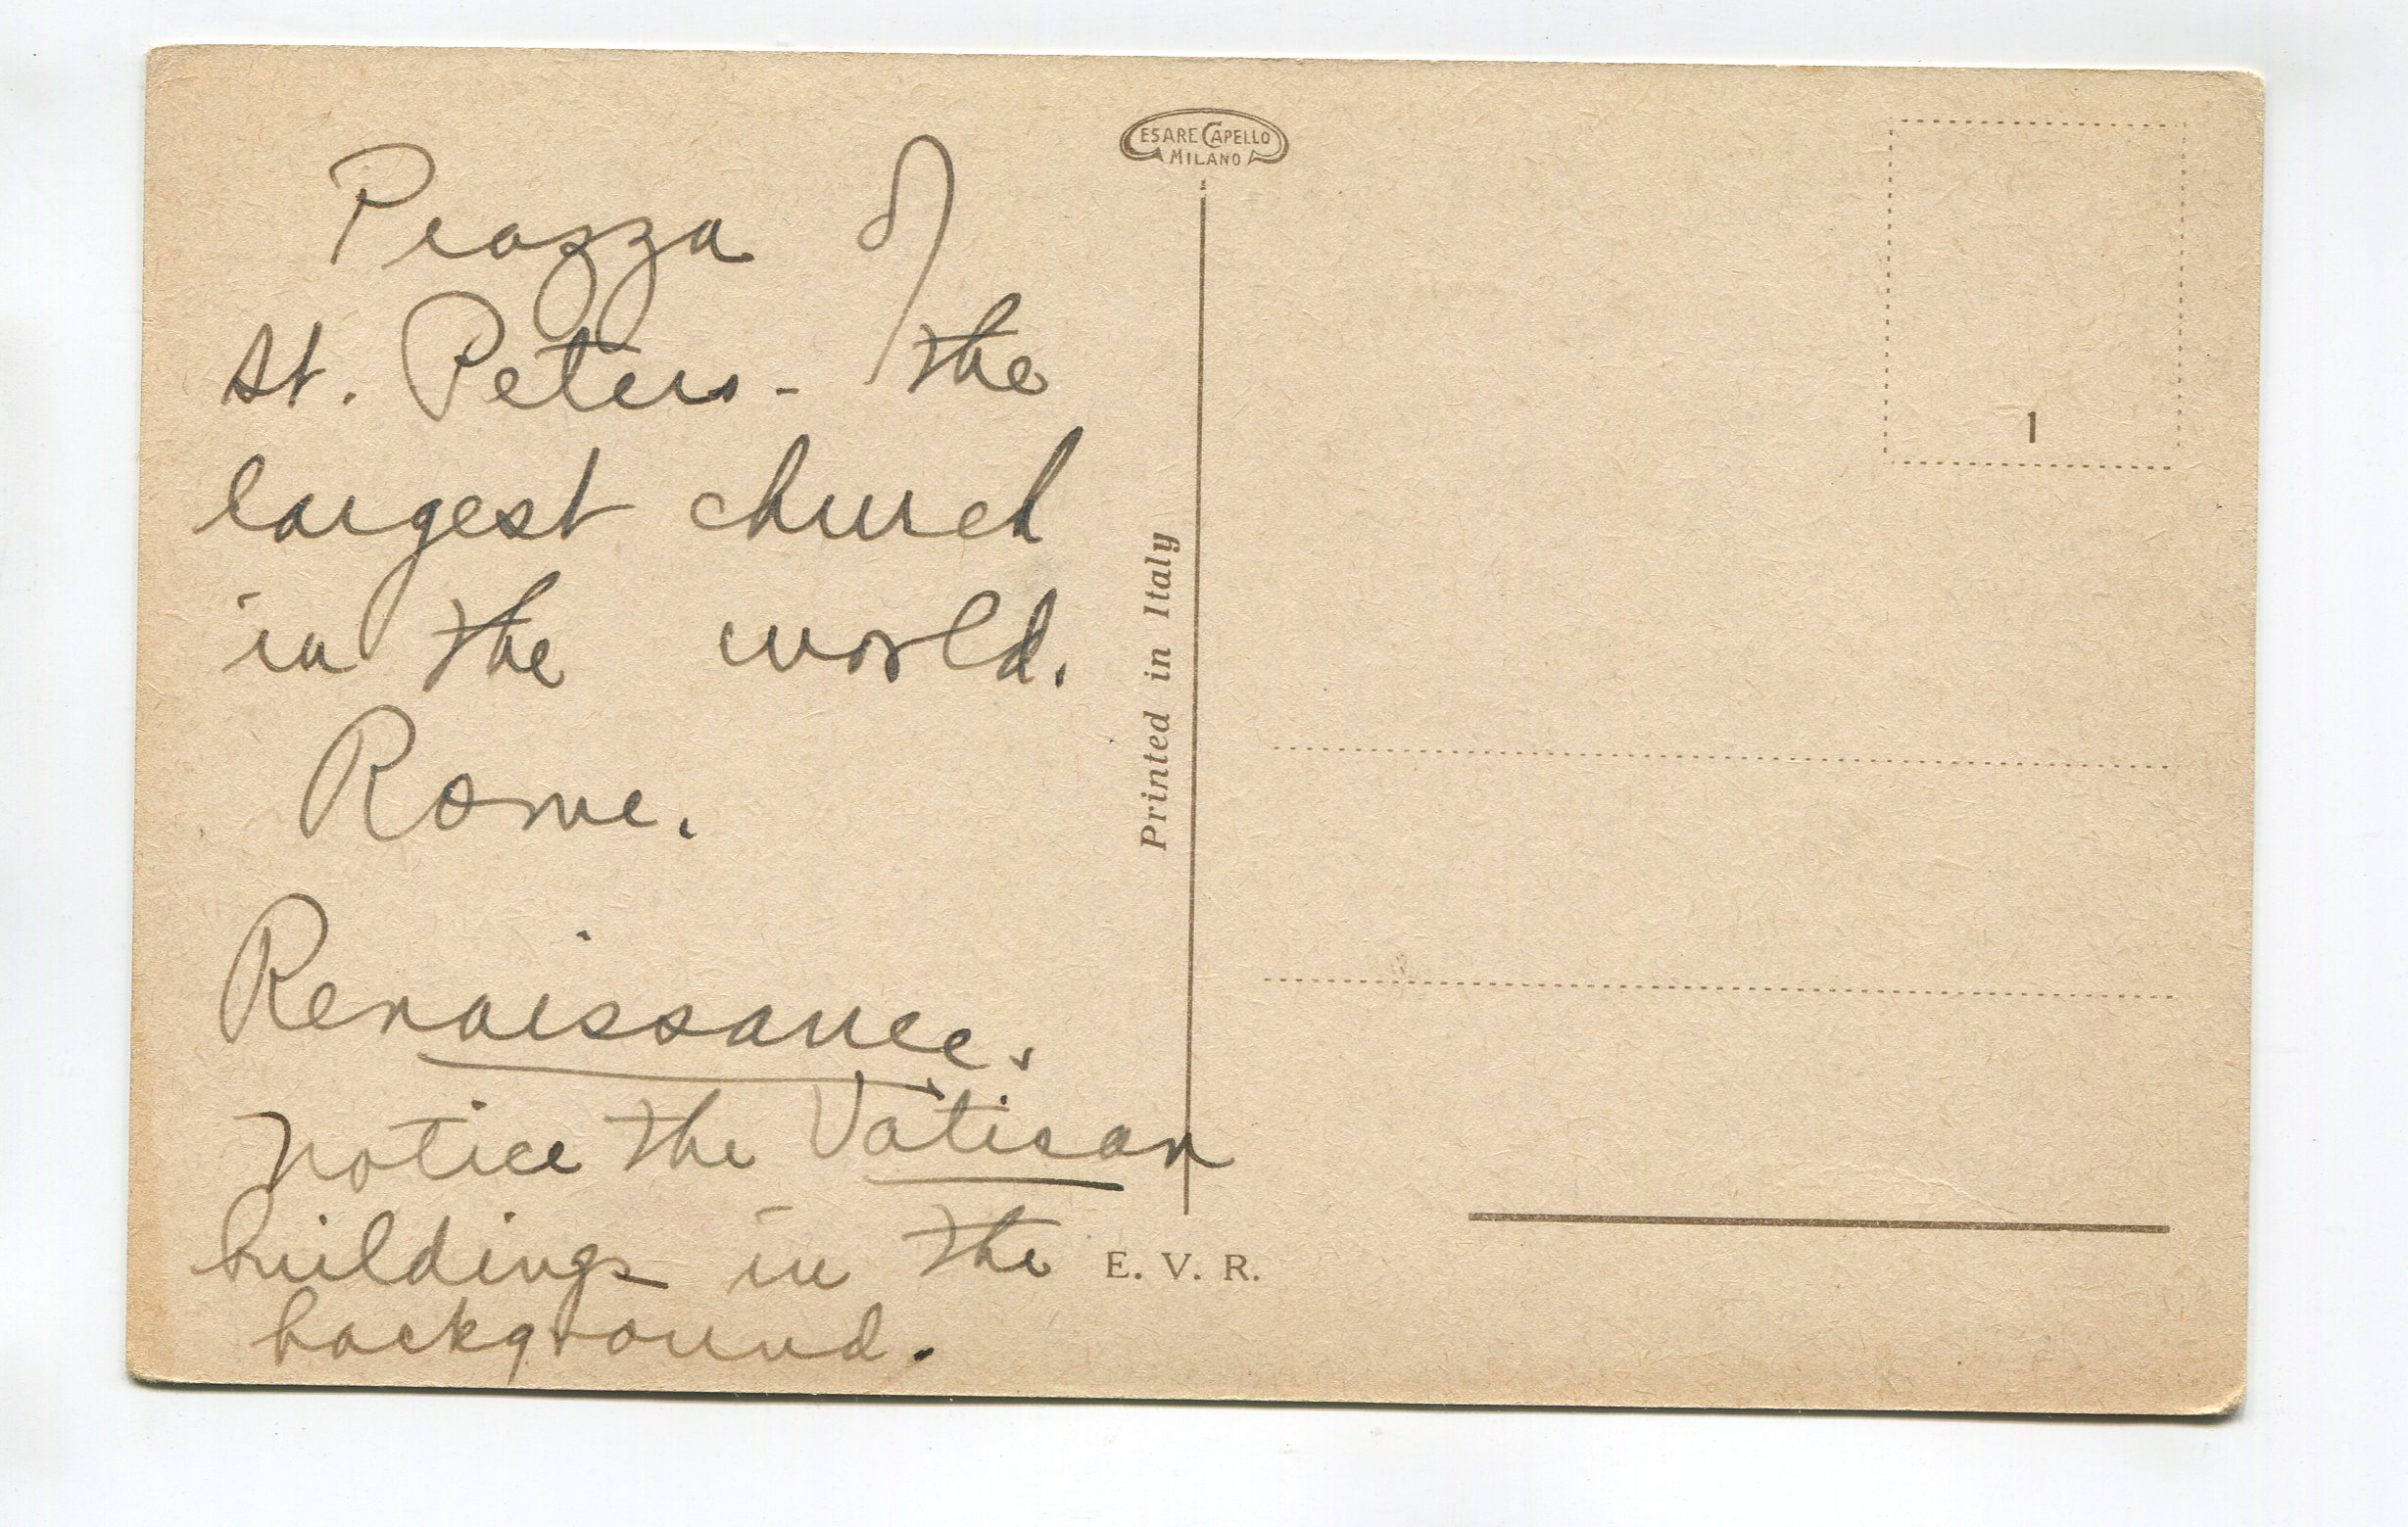 Piazza of
St. Peters - the
largest church
in the world.
Rome.
Renaissance.
notice the Vatican
buildings in the
background.
CESARE CAPELLO
MILANO
Printed in Italy
E. V. R.
1